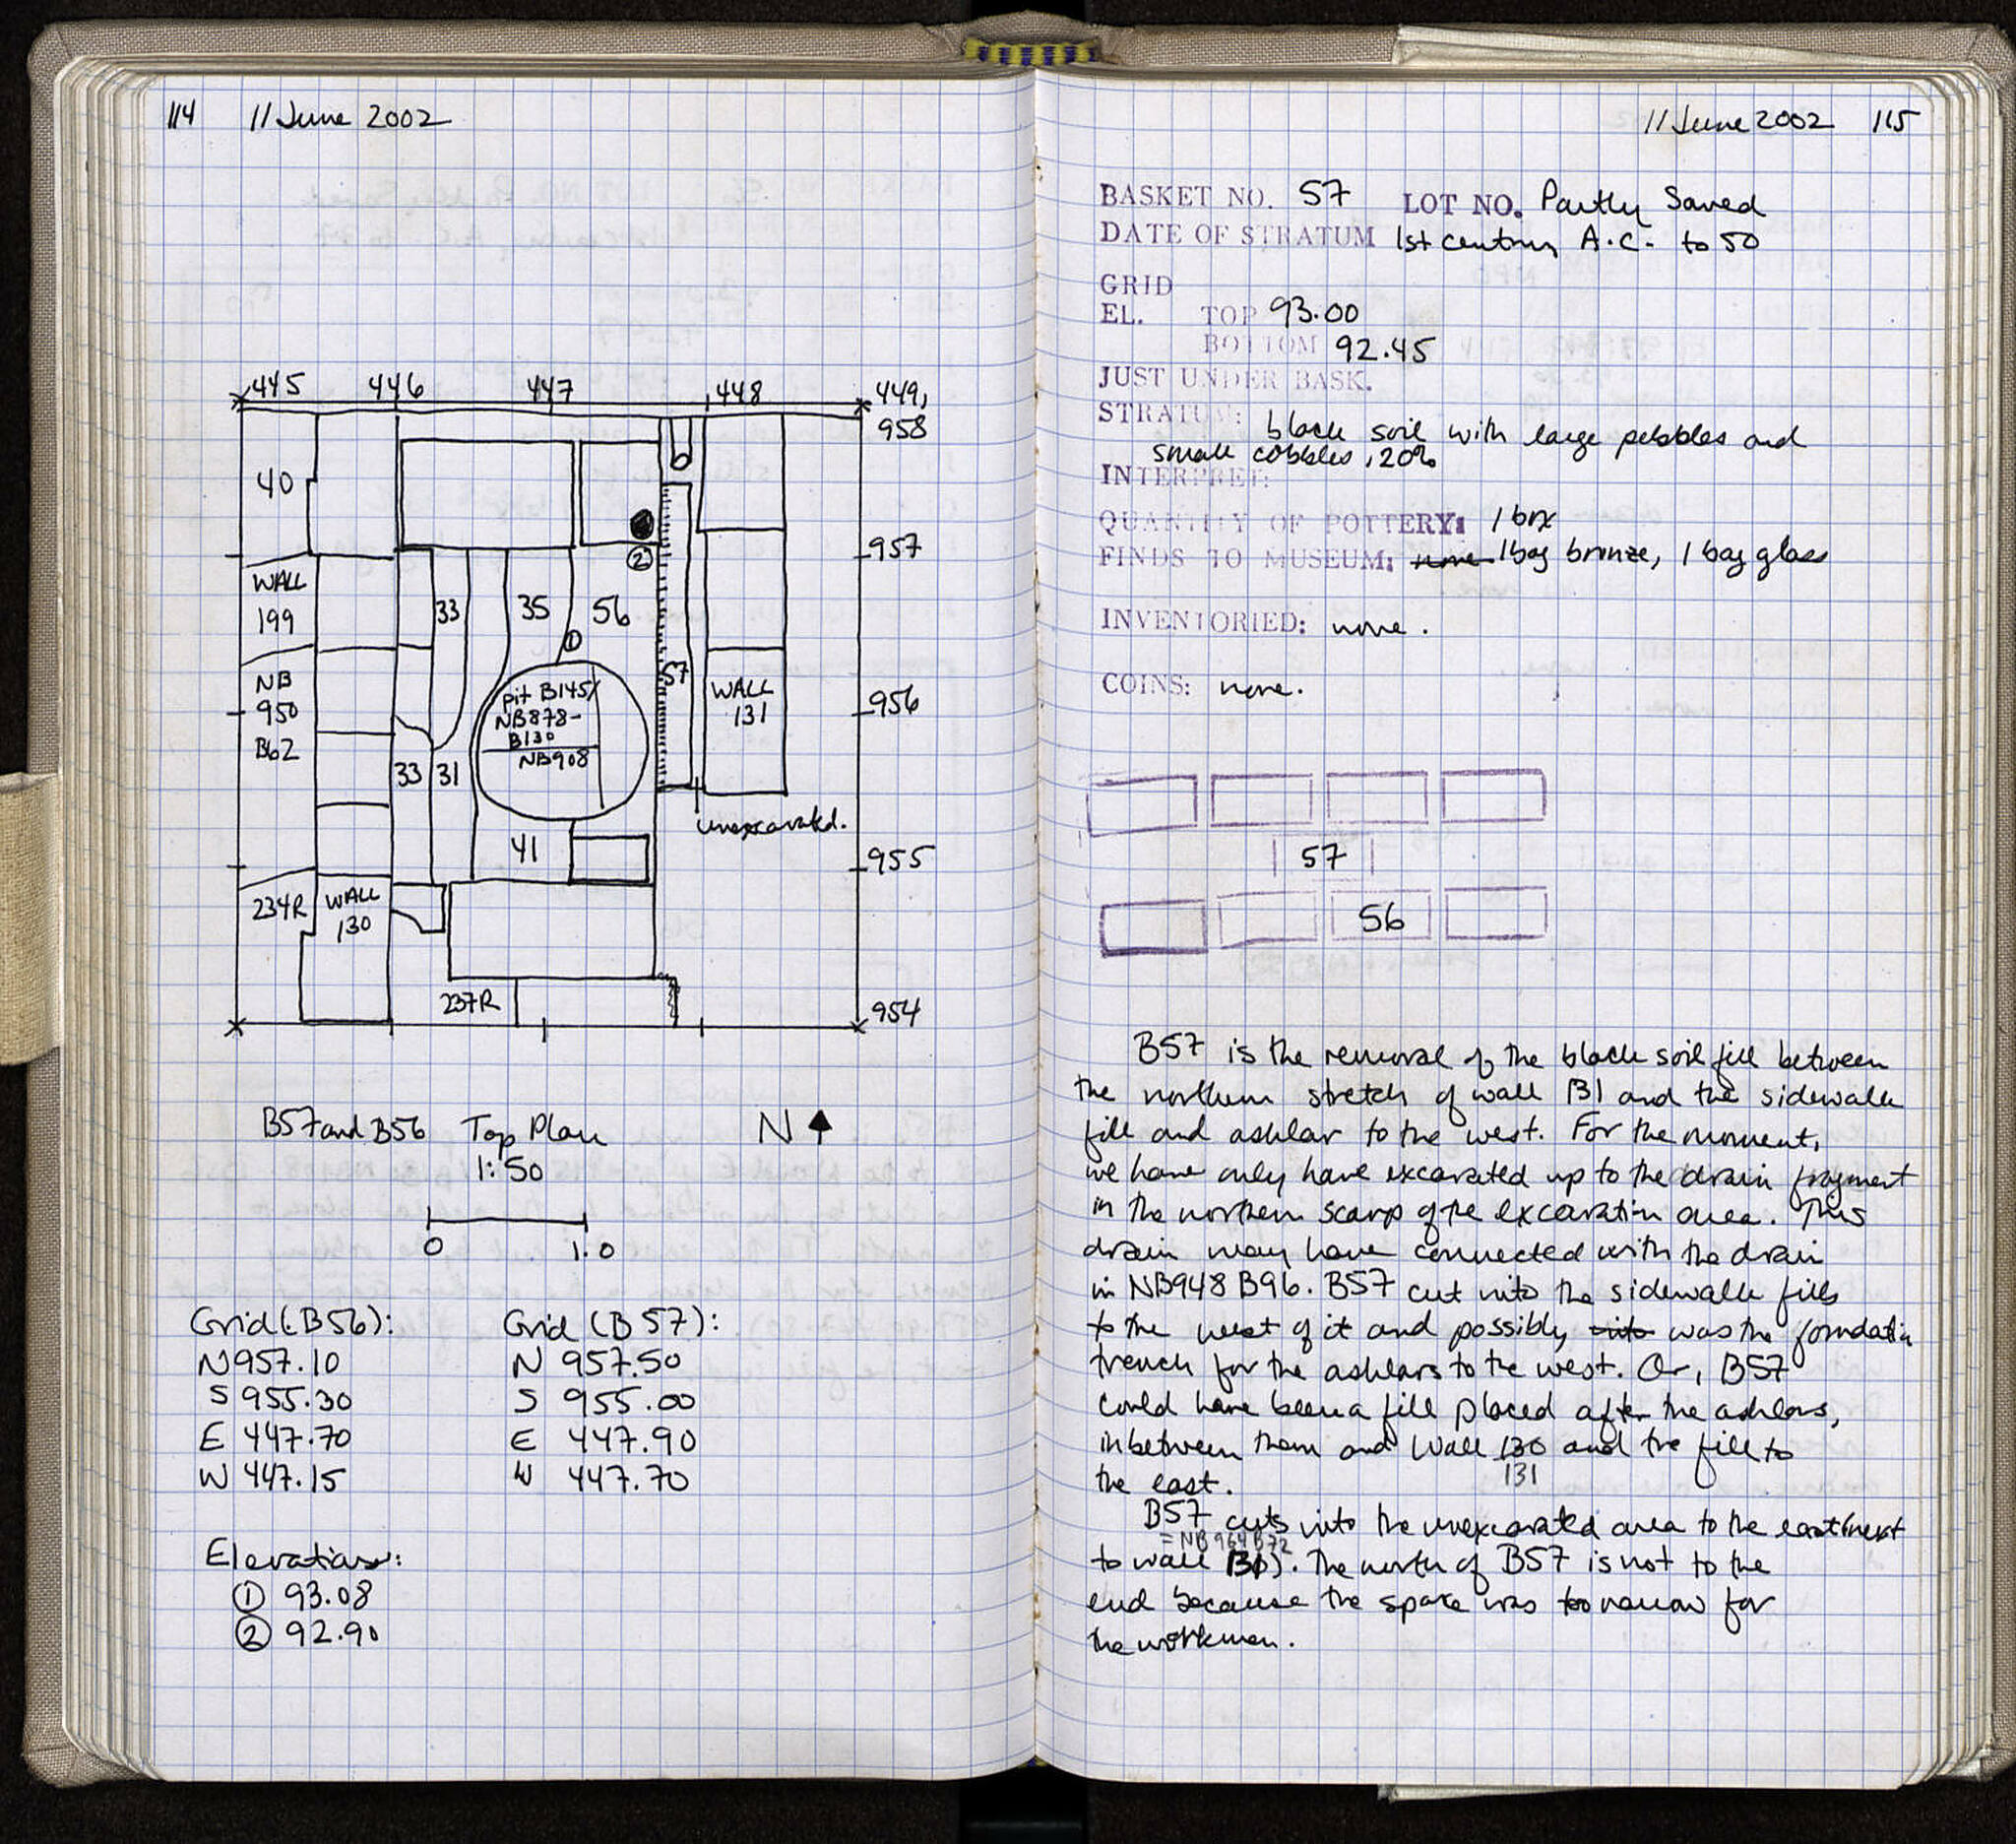 114 11 June 2002
445 446 447 448 449,
958
40
957
②
WALL
199
33 35 56
①
57
NB
950
B62
pit B145/
NB878-
B130
NB908
WALL
131
956
33 31
unexcavated.
41
955
234R WALL
130
237R
954
B57 and B56 Top Plan N
1:50
0 1.0
Grid (B56): Grid (B57):
N 957.10 N 957.50
S 955.30 S 955.00
E 447.70 E 447.90
W 447.15 W 447.70
Elevations:
① 93.08
② 92.90
11 June 2002 115
BASKET NO. 57 LOT NO. Partly Saved
DATE OF STRATUM 1st century A.C. to 50
GRID
EL. TOP 93.00
BOTTOM 92.45
JUST UNDER BASK.
STRATUM: black soil with large pebbles and
small cobbles, 20%
INTERPRET:
QUANTITY OF POTTERY: 1 box
FINDS TO MUSEUM: none 1 bag bronze, 1 bag glass
INVENTORIED: none.
COINS: none.
57
56
B57 is the removal of the black soil fill between
the northern stretch of wall 131 and the sidewalk
fill and ashlar to the west. For the moment,
we have only have excavated up to the drain fragment
in the northern scarp of the excavation area. This
drain may have connected with the drain
in NB948 B96. B57 cut into the sidewalk fills
to the west of it and possibly into was the foundation
trench for the ashlars to the west. Or, B57
could have been a fill placed after the ashlars,
inbetween them and Wall 130 and the fill to
131
the east.
B57 cuts into the unexcavated area to the east (next
= NB 964 B72
to wall 131). The north of B57 is not to the
end because the space was too narrow for
the workmen.